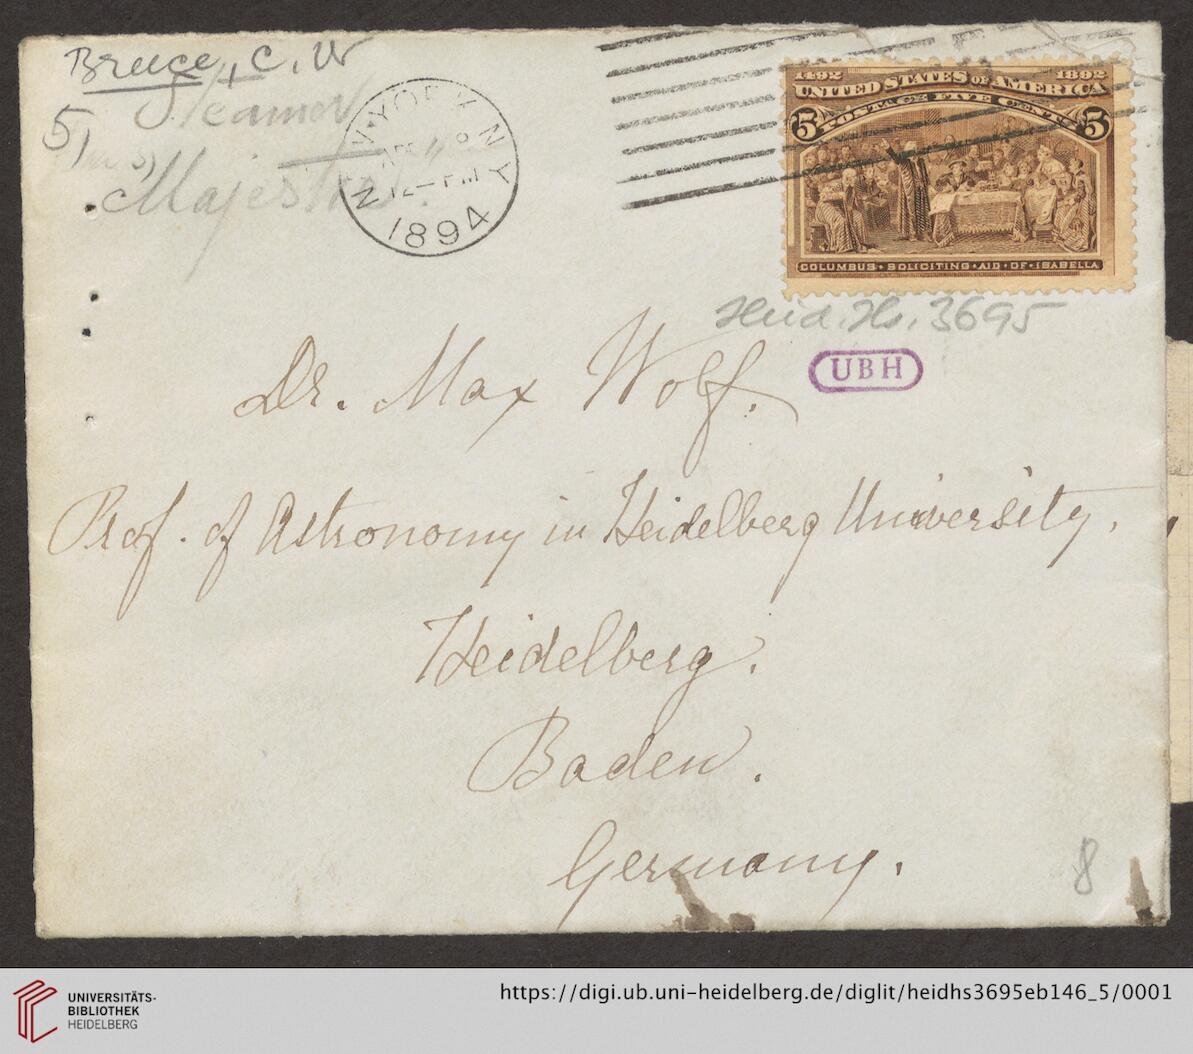 Bruce, C. W
5,
Steamer
Majestic
NEW YORK N Y
12 — PM
1894
1492 1892
UNITED STATES OF AMERICA
POSTAGE FIVE CENTS
5 5
COLUMBUS · SOLICITING · AID · OF · ISABELLA
Heid. Hs. 3695
UBH
Dr. Max Wolf.
Prof. of Astronomy in Heidelberg University.
Heidelberg.
Baden.
Germany.
8
UNIVERSITÄTS-
BIBLIOTHEK
HEIDELBERG
https://digi.ub.uni-heidelberg.de/diglit/heidhs3695eb146_5/0001